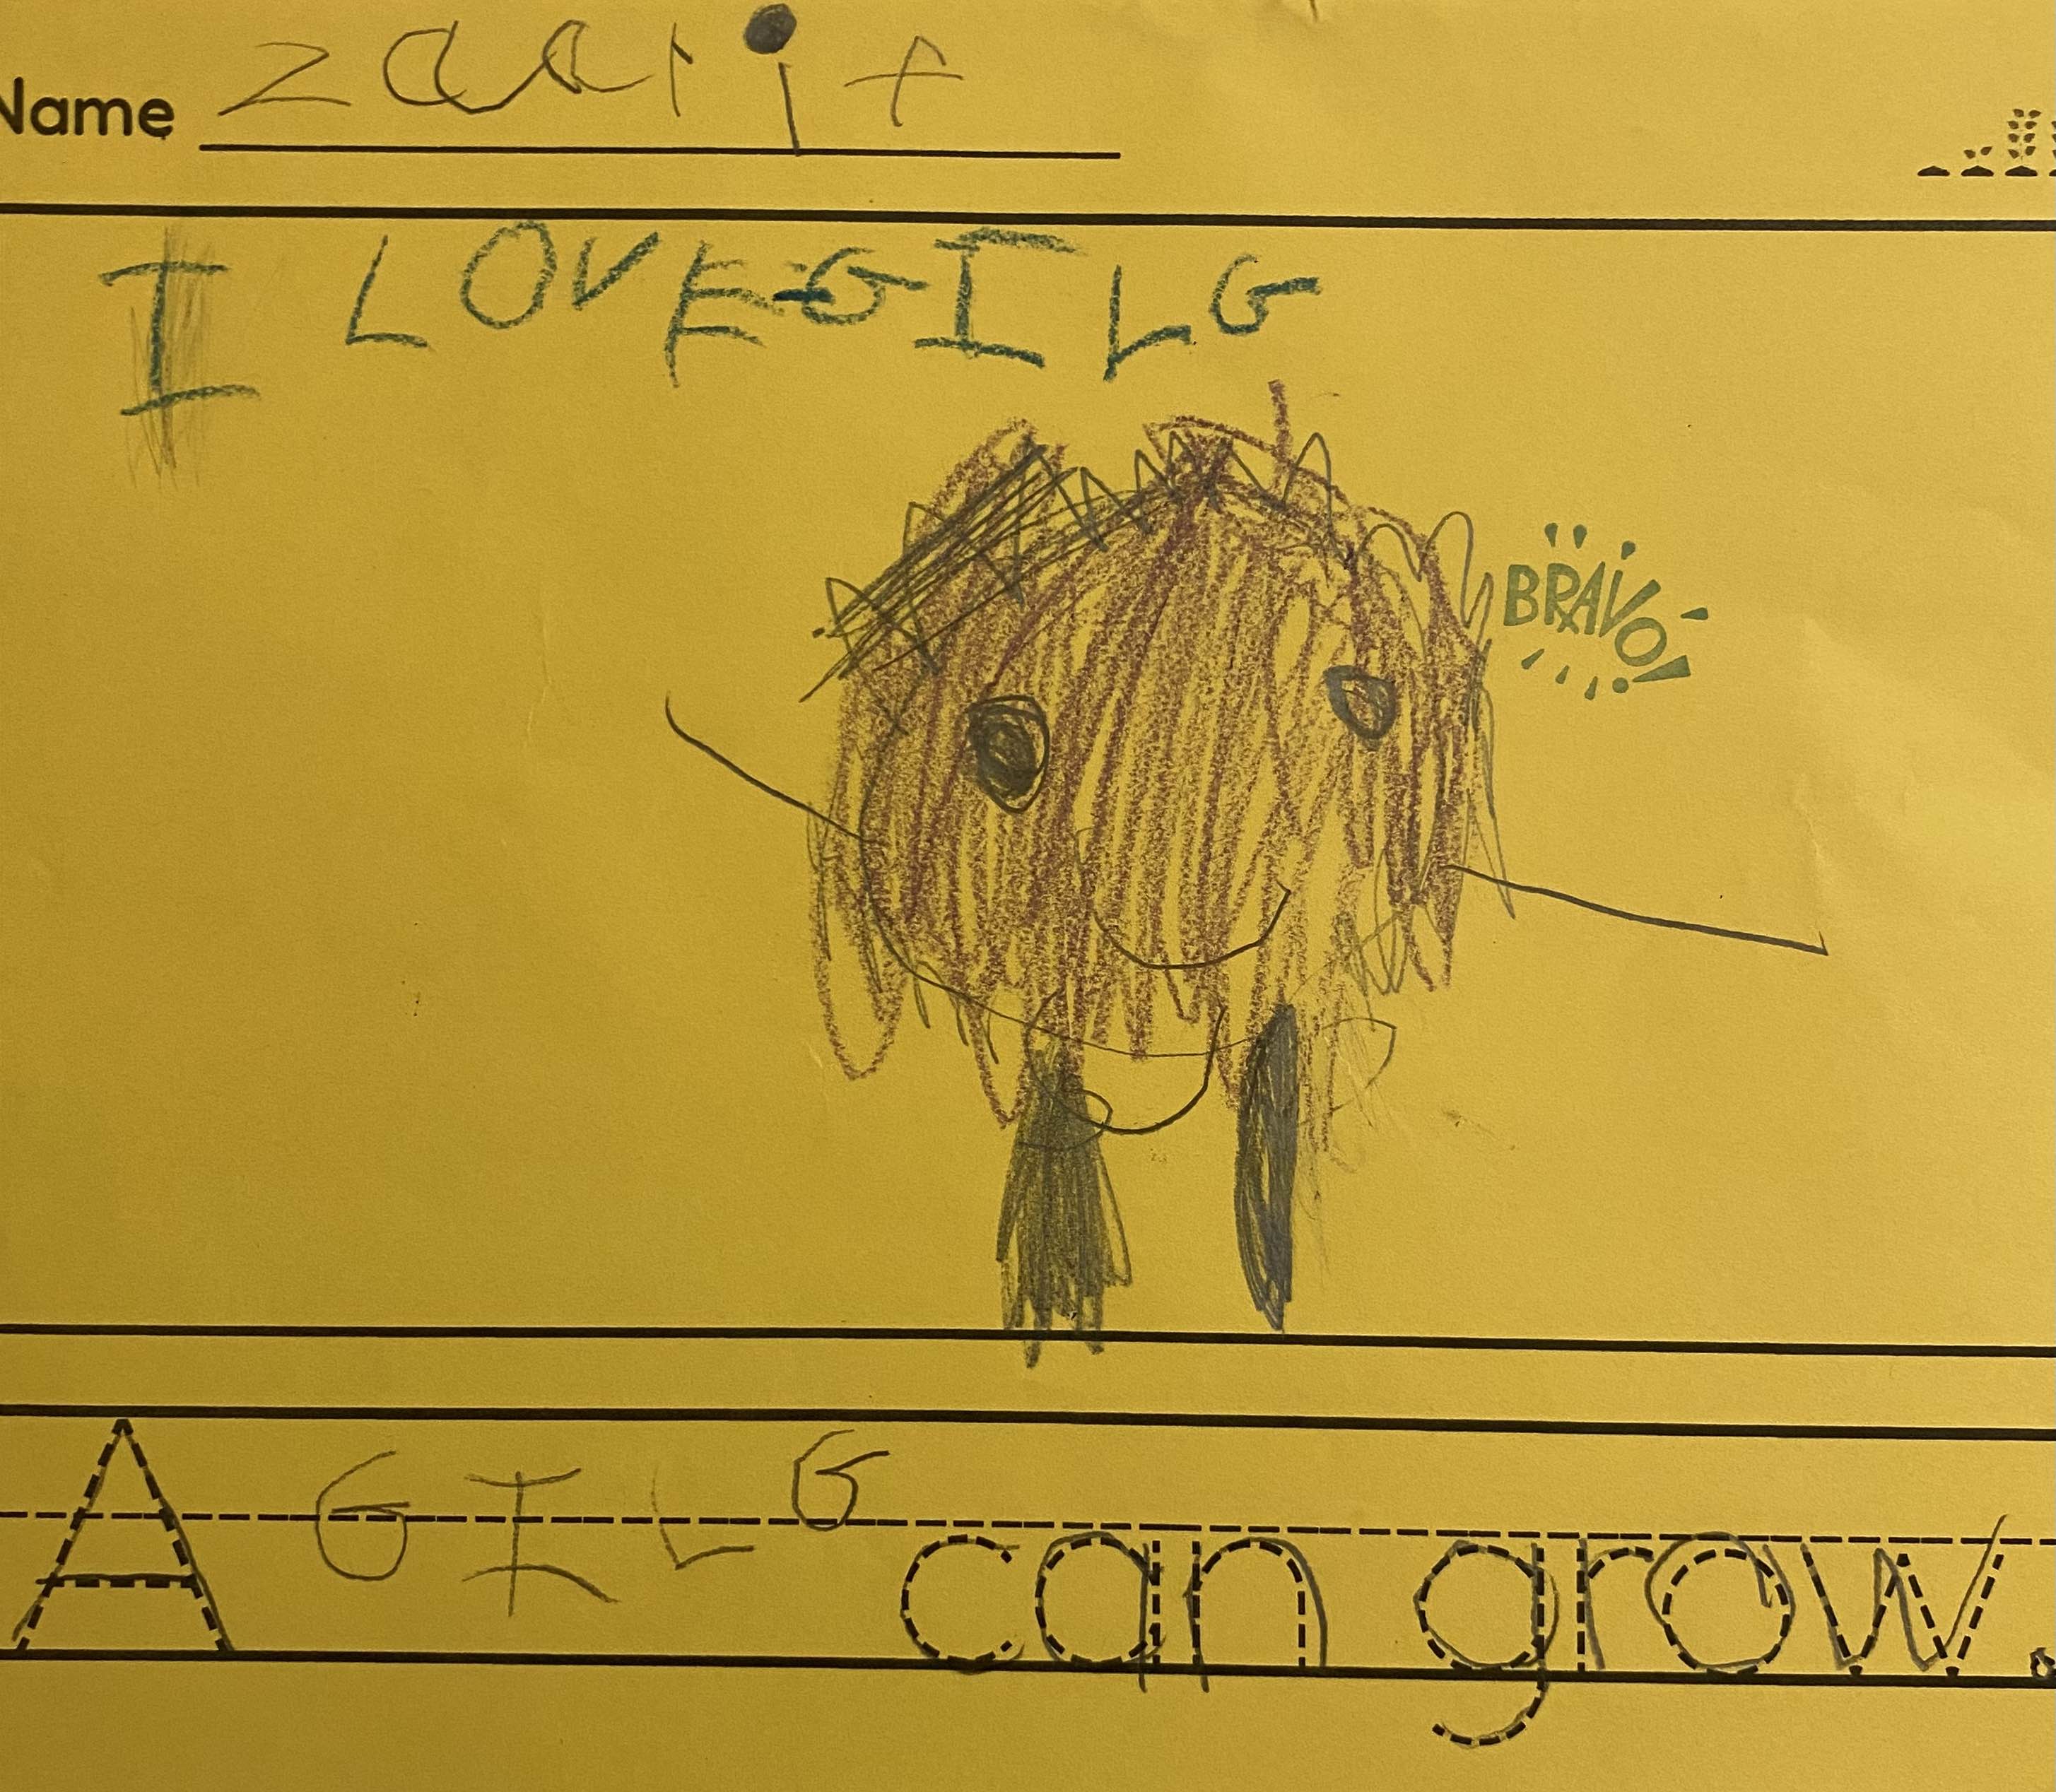 Name zaarit
I LOVE GILG
BRAVO!
A GILG can grow.